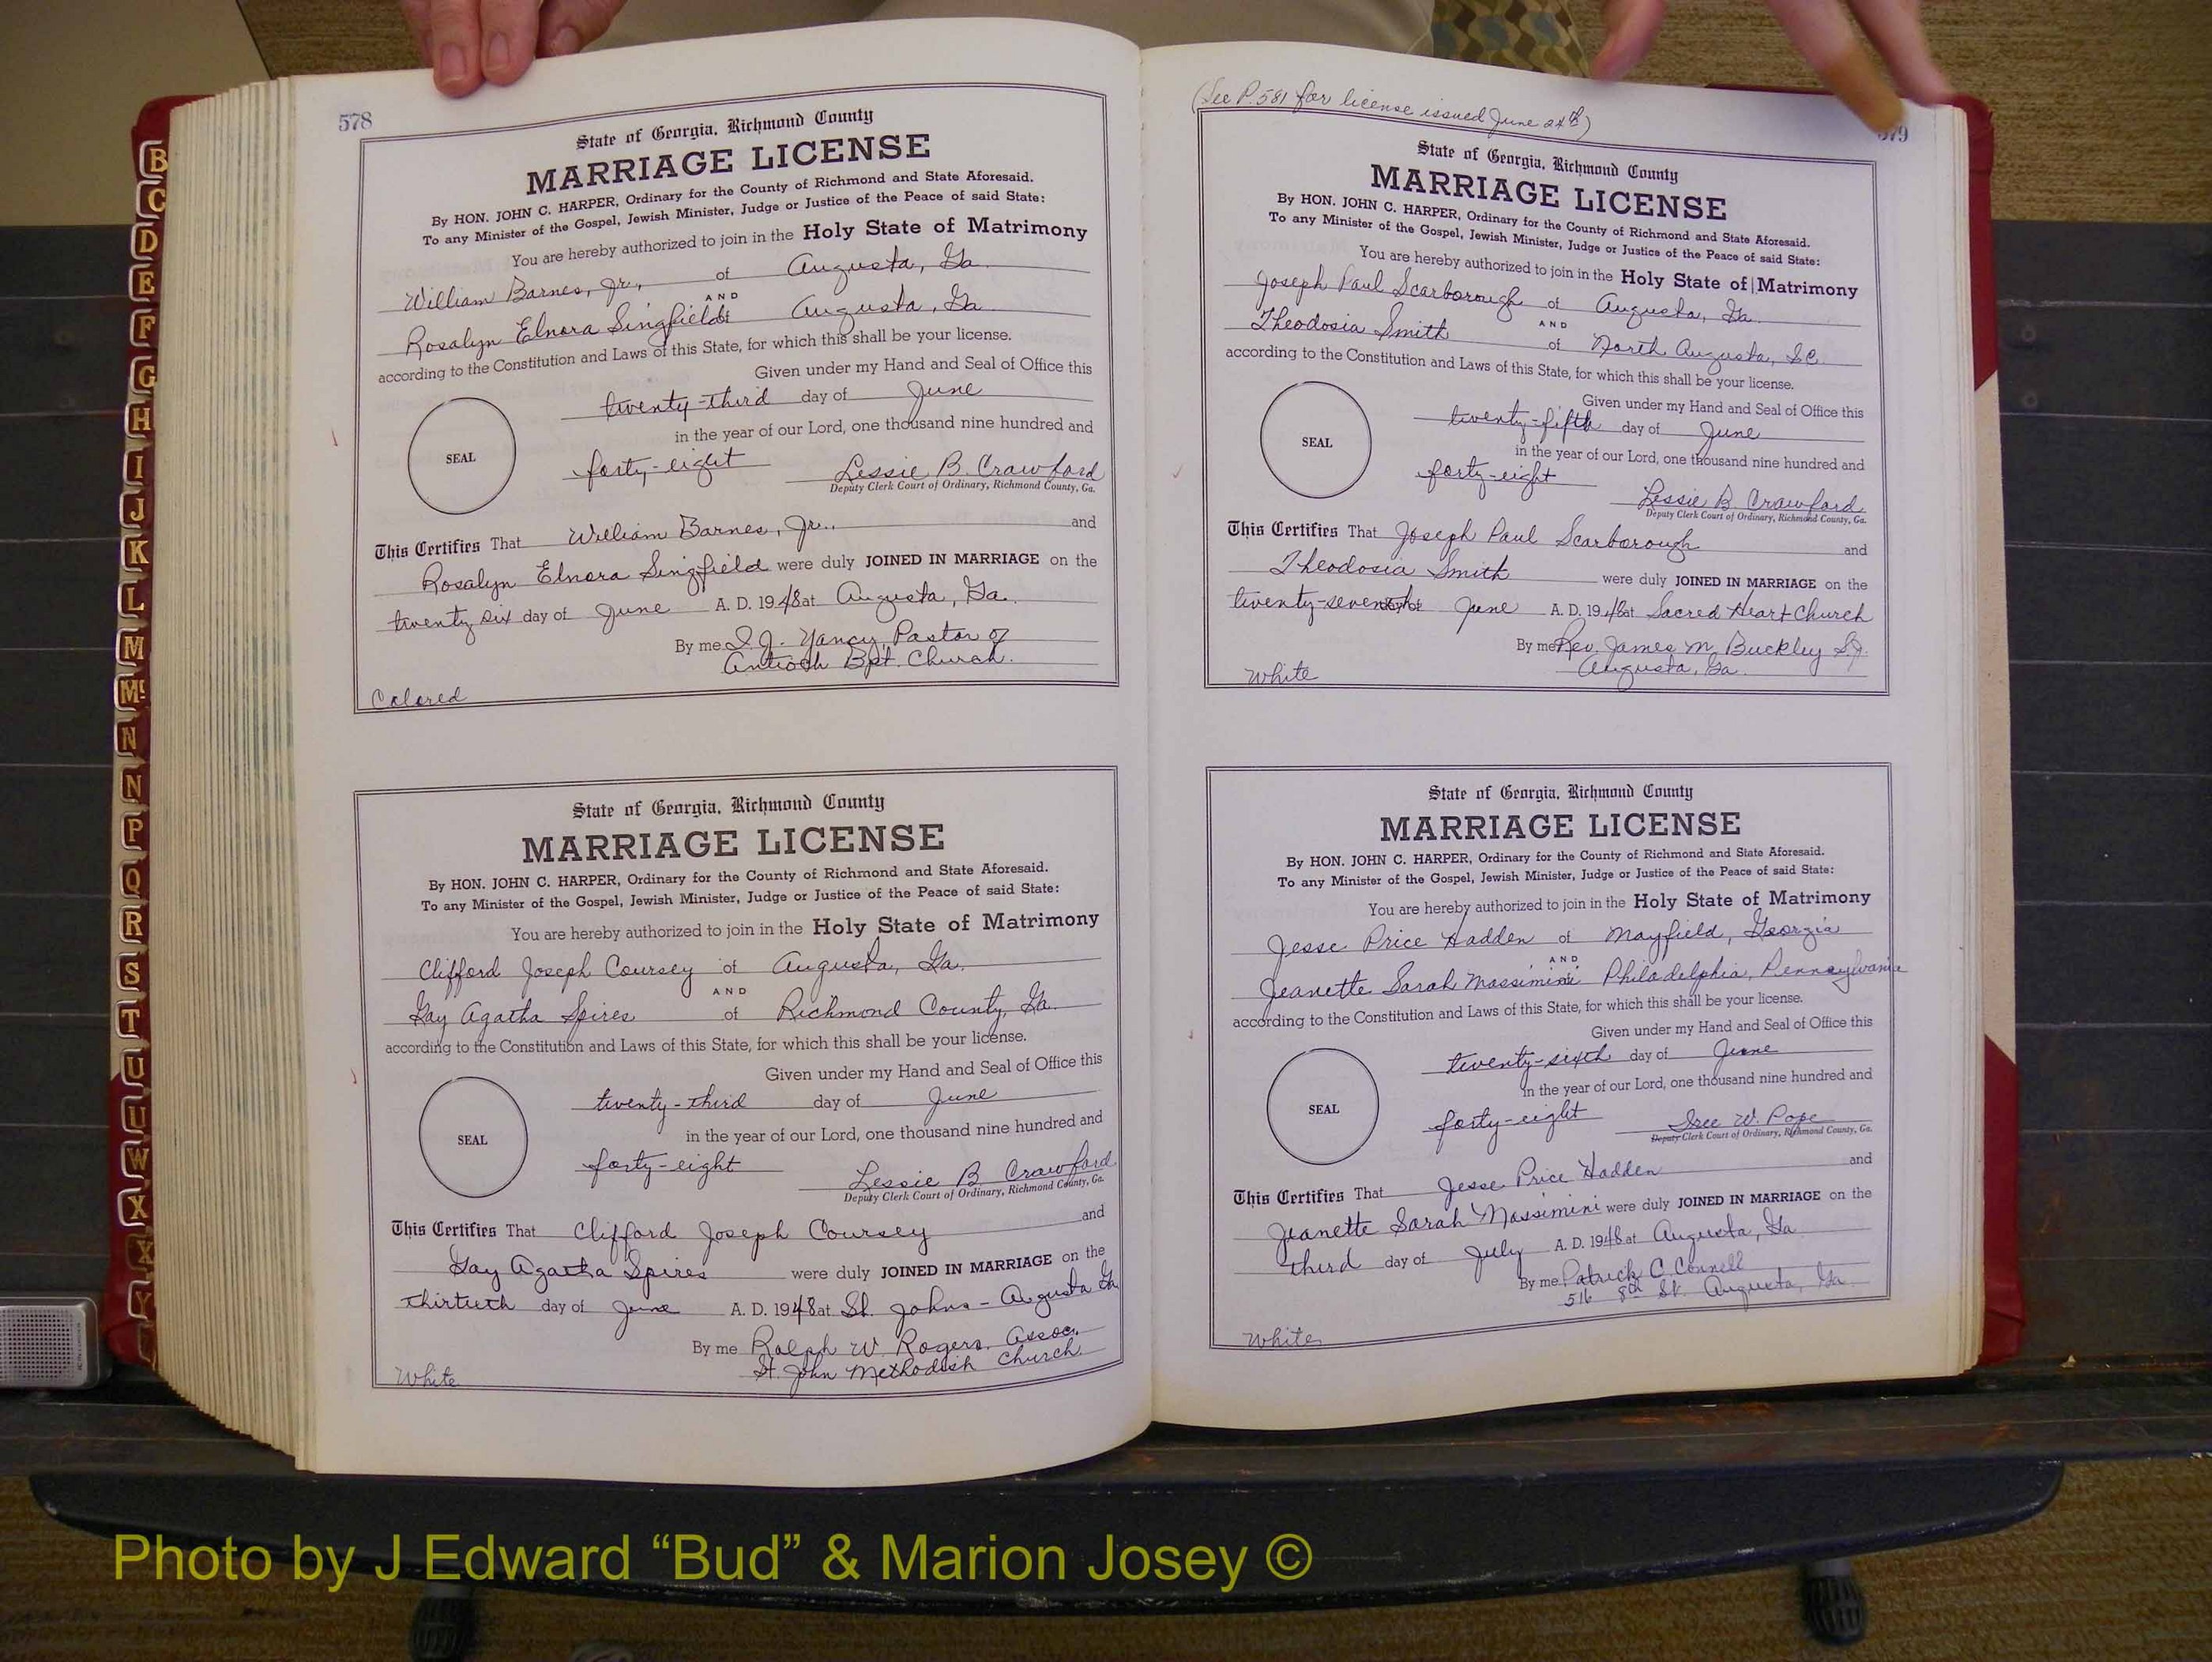 B
C
D
E
F
G
H
I
J
K
L
M
Mc
N
N
P
Q
R
S
T
U
U
W
X
X
Y
578
State of Georgia, Richmond County
MARRIAGE LICENSE
By HON. JOHN C. HARPER, Ordinary for the County of Richmond and State Aforesaid.
To any Minister of the Gospel, Jewish Minister, Judge or Justice of the Peace of said State:
You are hereby authorized to join in the Holy State of Matrimony
William Barnes, Jr., of Augusta, Ga.
AND
Rosalyn Elnora Singfield of Augusta, Ga.
according to the Constitution and Laws of this State, for which this shall be your license.
Given under my Hand and Seal of Office this
twenty-third day of June
in the year of our Lord, one thousand nine hundred and
SEAL
forty-eight Lessie B. Crawford
Deputy Clerk Court of Ordinary, Richmond County, Ga.
This Certifies That William Barnes, Jr., and
Rosalyn Elnora Singfield were duly JOINED IN MARRIAGE on the
twenty six day of June A. D. 1948 at Augusta, Ga.
By me S. J. Yancy, Pastor of
Antioch Bpt. Church.
Colored
State of Georgia, Richmond County
MARRIAGE LICENSE
By HON. JOHN C. HARPER, Ordinary for the County of Richmond and State Aforesaid.
To any Minister of the Gospel, Jewish Minister, Judge or Justice of the Peace of said State:
You are hereby authorized to join in the Holy State of Matrimony
Clifford Joseph Coursey of Augusta, Ga.
AND
Gay Agatha Spires of Richmond County, Ga.
according to the Constitution and Laws of this State, for which this shall be your license.
Given under my Hand and Seal of Office this
twenty-third day of June
in the year of our Lord, one thousand nine hundred and
SEAL
forty-eight Lessie B. Crawford
Deputy Clerk Court of Ordinary, Richmond County, Ga.
This Certifies That Clifford Joseph Coursey and
Gay Agatha Spires were duly JOINED IN MARRIAGE on the
thirtieth day of June A. D. 1948 at St. Johns - Augusta Ga
By me Ralph W. Rogers, Assoc.
St. John Methodist Church.
White
(See P. 581 for license issued June 24th)
579
State of Georgia, Richmond County
MARRIAGE LICENSE
By HON. JOHN C. HARPER, Ordinary for the County of Richmond and State Aforesaid.
To any Minister of the Gospel, Jewish Minister, Judge or Justice of the Peace of said State:
You are hereby authorized to join in the Holy State of Matrimony
Joseph Paul Scarborough of Augusta, Ga.
AND
Theodosia Smith of North Augusta, S.C.
according to the Constitution and Laws of this State, for which this shall be your license.
Given under my Hand and Seal of Office this
twenty-fifth day of June
in the year of our Lord, one thousand nine hundred and
SEAL
forty-eight Lessie B. Crawford
Deputy Clerk Court of Ordinary, Richmond County, Ga.
This Certifies That Joseph Paul Scarborough and
Theodosia Smith were duly JOINED IN MARRIAGE on the
twenty-seventh day of June A. D. 1948 at Sacred Heart Church
By me Rev. James M. Buckley S.J.
Augusta, Ga.
White
State of Georgia, Richmond County
MARRIAGE LICENSE
By HON. JOHN C. HARPER, Ordinary for the County of Richmond and State Aforesaid.
To any Minister of the Gospel, Jewish Minister, Judge or Justice of the Peace of said State:
You are hereby authorized to join in the Holy State of Matrimony
Jesse Price Hadden of Mayfield, Georgia
AND
Jeanette Sarah Massimini of Philadelphia, Pennsylvania
according to the Constitution and Laws of this State, for which this shall be your license.
Given under my Hand and Seal of Office this
twenty-sixth day of June
in the year of our Lord, one thousand nine hundred and
SEAL
forty-eight W. Pope
Deputy Clerk Court of Ordinary, Richmond County, Ga.
This Certifies That Jesse Price Hadden and
Jeanette Sarah Massimini were duly JOINED IN MARRIAGE on the
third day of July A. D. 1948 at Augusta, Ga
By me Patrick C. Connell
516 8th St. Augusta, Ga.
White
Photo by J Edward “Bud” & Marion Josey ©